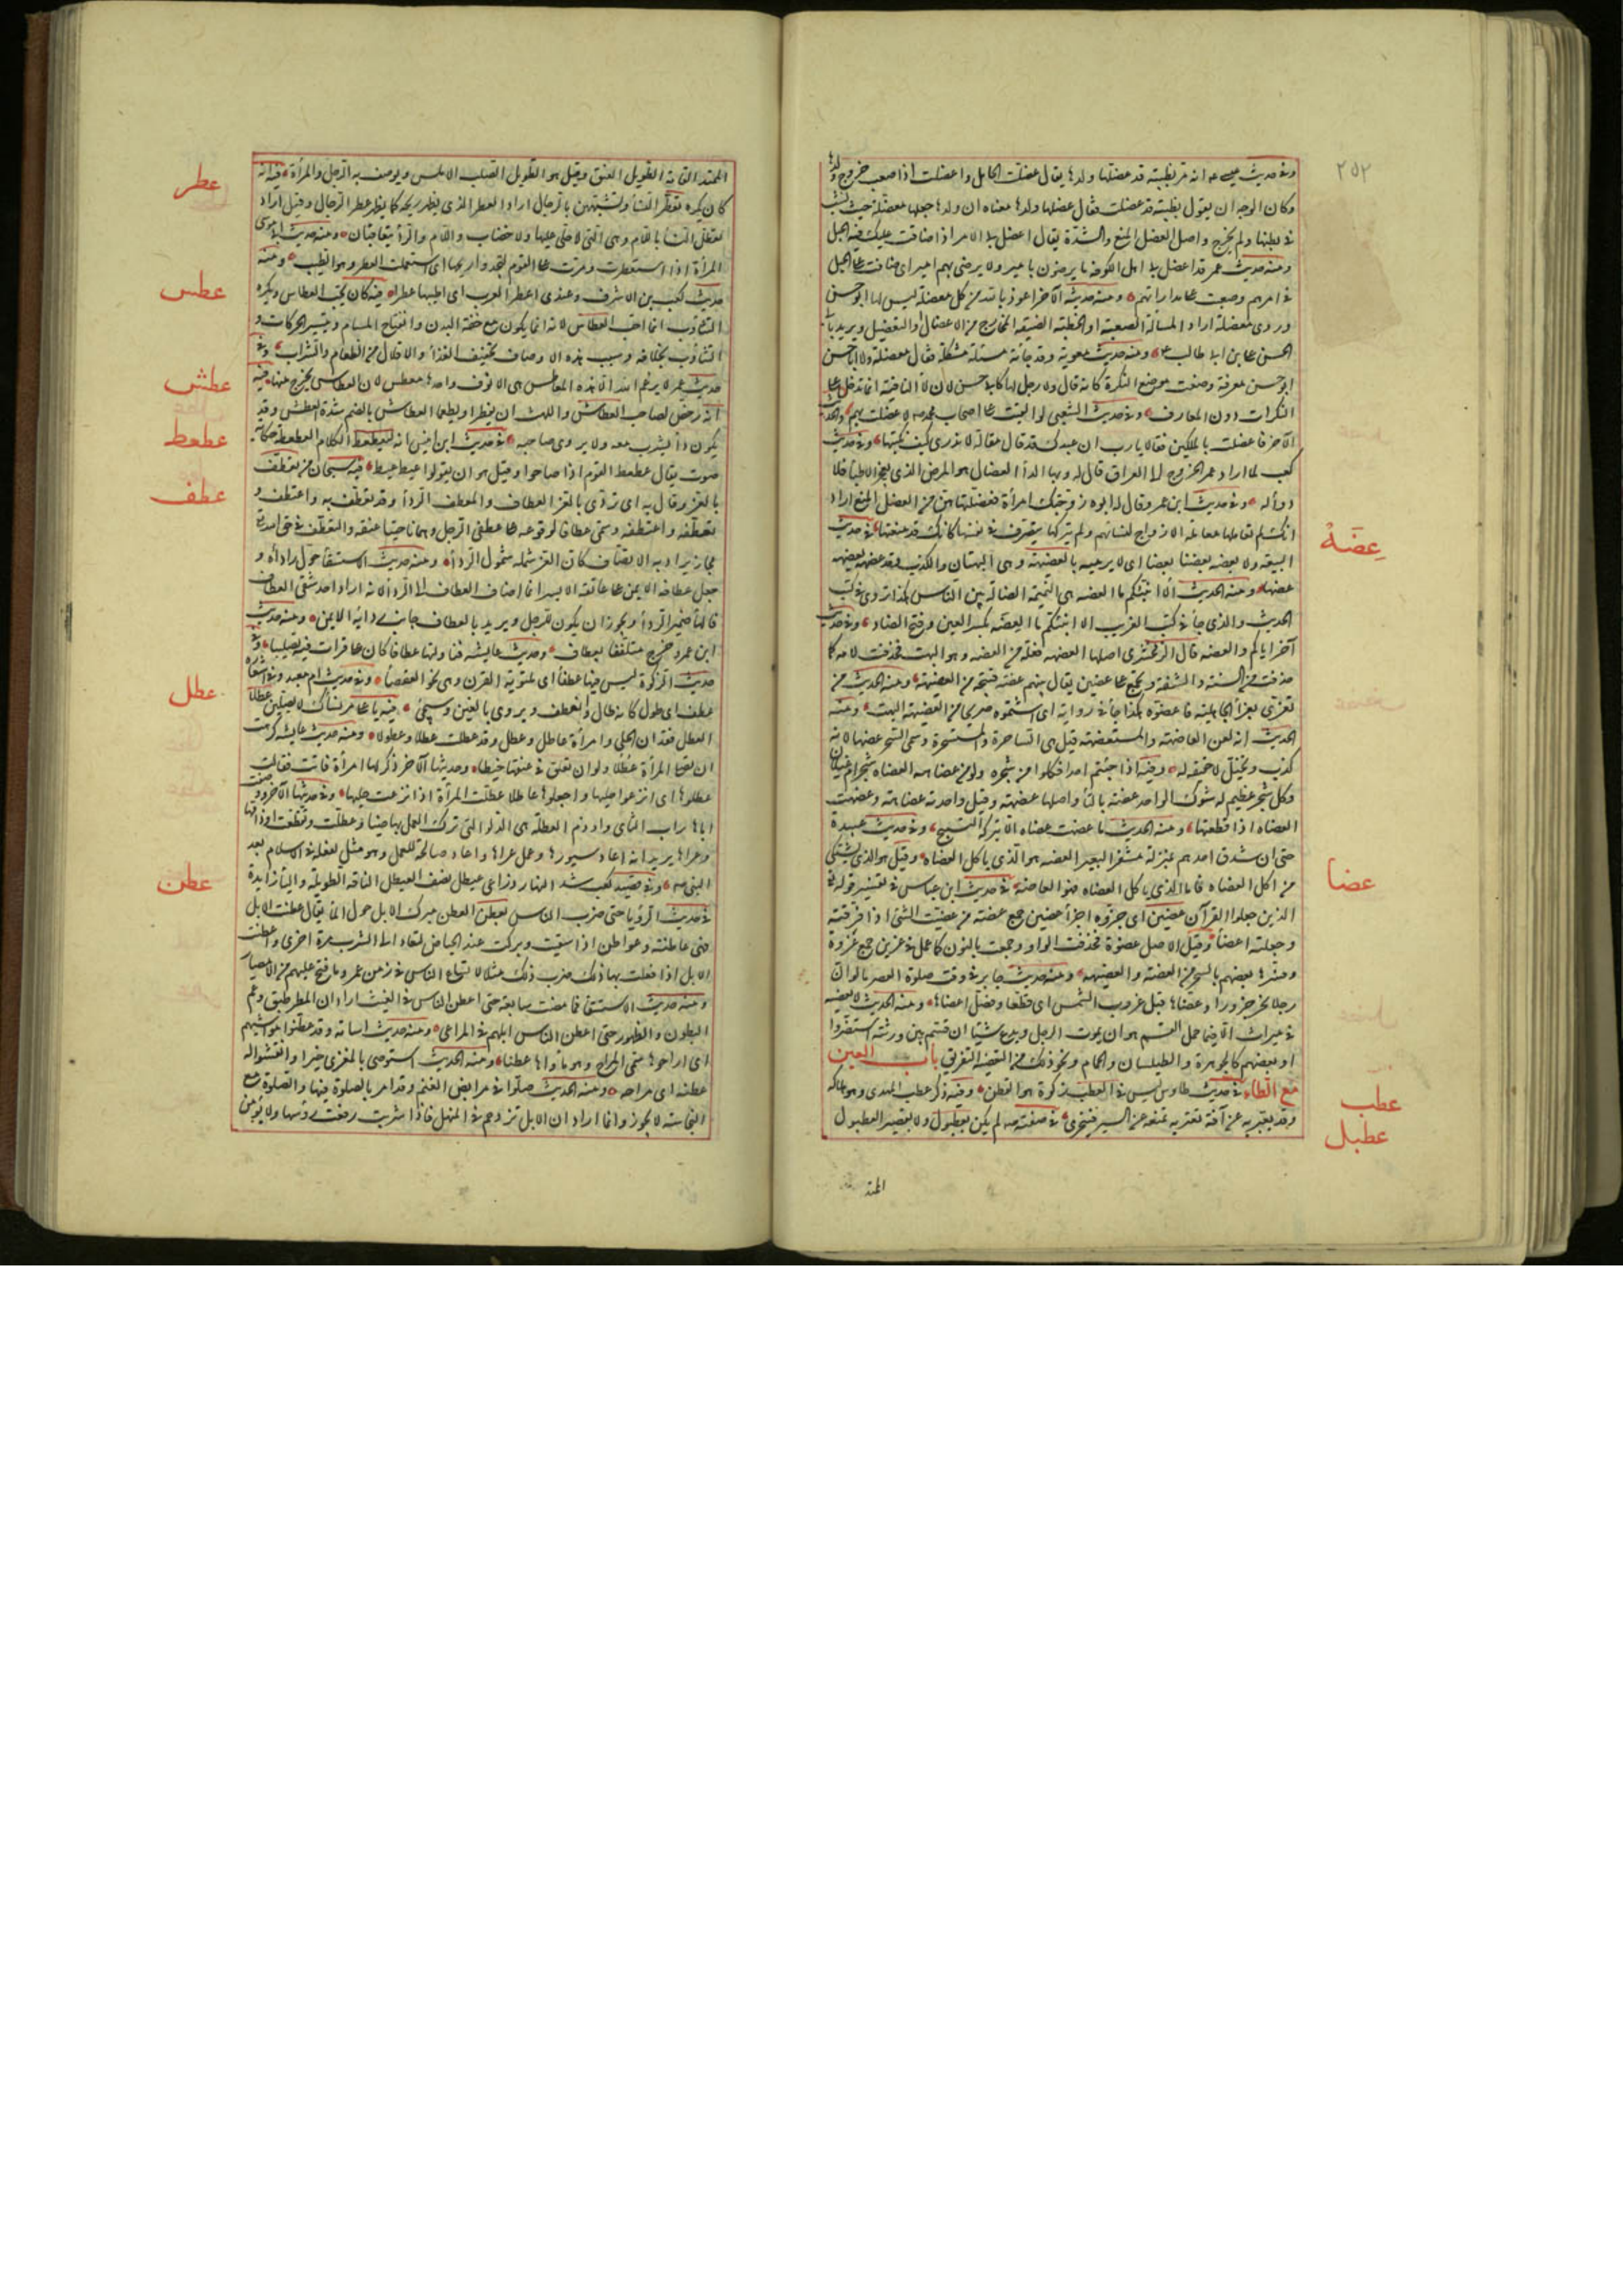 ٢٥٢
وفي حديث عيسى عم انه مر بظبية قد عضلها ولدها يقال عضلت الحامل واعضلت اذا صعب خروج ولدها
وكان الوجه ان يقول بظبية قد عضلت فقال عضلها ولدها معناه ان ولدها جعلها معضلة حيث نشب
في بطنها ولم يخرج واصل العضل المنع والشدة يقال اعضل بي الامر اذا ضاقت عليك فيه الحيل
ومنه حديث عمر قد اعضل بي اهل الكوفة ما يرضون بامير ولا يرضى بهم امير اى ضاقت على الحيل
في امرهم وصعبت على مداراتهم ومنه حديثه الآخر اعوذ بالله من كل معضلة ليس لها ابو حسن
وروى معضلة اراد المسألة الصعبة او الخطة الضيقة المخارج من الاعضال او التعضيل ويريد بابي
الحسن علي بن ابي طالب ومنه حديث معوية وقد جأته مسئلة مشكلة فقال معضلة ولا ابا حسن
ابو حسن معرفة وضعت موضع النكرة كانه قال ولا رجل لها كابي حسن لان لا النافية انما تدخل على
النكرات دون المعارف وفي حديث الشعبي لو القيت على اصحاب محمد صم لاعضلت بهم والحديث
الآخر فاعضلت بالملكين فقالا يارب ان عبدك قد قال مقالة لا ندرى كيف نكتبها وفي حديث
كعب لما اراد عمر الخروج الى العراق قال له وبها الدأ العضال هو المرض الذى يعجز الاطبا فلا
دوأ له وفي حديث ابن عمرو قال له ابوه زوجتك امرأة فعضلتها هو من العضل المنع اراد
انك لم تعاملها معاملة الازواج لنسائهم ولم تتركها يتصرف في نفسها كانك قد منعتها في حديث
البيعة ولا يعضه بعضنا بعضا اى لا يرميه بالعضيهة وهي البهتان والكذب وقد عضهه يعضهه
عضها ومنه الحديث ألا انبئكم ما العضه هي النميمة القالة بين الناس هكذا تروى في كتب
الحديث والذى جأ في كتب الغريب الا انبئكم ما العِضَة بكسر العين وفتح الضاد وفي حديث
آخر اياكم والعضه قال الزمخشرى اصلها العضهة فعلة من العضه وهو البهت فحذفت لامه كما
حذفت من السنة والشفة وتجمع على عضين يقال بينهم عضة قبيحة من العضيهة ومنه الحديث من
تعزى بعزأ الجاهلية فاعضوه هكذا جأ في رواية اى اشتموه صريحا من العضيهة البهت ومنه
الحديث انه لعن العاضهة والمستعضهة قيل هي الساحرة والمستسحرة وسمى السحر عضها لانه
كذب وتخيل لا حقيقة له وفيه اذا جئتم احدا فكلوا من شجره ولو من عضاهه العضاه شجر ام غيلان
وكل شجر عظيم له شوك الواحد عضة بالتأ واصلها عضهة وقيل واحدته عضاهة وعضهت
العضاه اذا قطعتها ومنه الحديث ما عضهت عضاه الا بتركها التسبيح وفي حديث عبيدة
حتى ان شدق احدهم بمنزلة مشفر البعير العضه هو الذى ياكل العضاه وقيل هو الذى يشتكي
من اكل العضاه فاما الذى ياكل العضاه فهو العاضه في حديث ابن عباس في تفسير قوله تع
الذين جعلوا القرآن عضين اى جزؤه اجزأ عضين جمع عضة من عضيت الشئ اذا فرقته
وجعلته اعضأ وقيل الاصل عضوة فحذفت الواو وجمعت بالنون كما عمل في عزين جمع عزوة
وفسرها بعضهم بالسحر من العضه والعضيهة ومنه حديث جابر في وقت صلوة العصر ما لو ان
رجلا نحر جزورا وعضاها قبل غروب الشمس اى قطعها وفصل اعضأها ومنه الحديث لا تعضية
في ميراث الا فيما حمل القسم هو ان يموت الرجل ويدع شيئا ان قسم بين ورثته استضروا
او بعضهم كالجوهرة والطيلسان والحمام ونحو ذلك من التعضية التفريق باب العين
مع الطاء في حديث طاوس ليس في العطب زكوة هو القطن وفيه ذكر عطب الهدى وهو هلاكه
وقد يعبر به عن آفة تعتريه تمنعه عن السير فينحر في صفته صم لم يكن بعطبول ولا بقصير العطبول
الممتد
عضه
عضا
عطب
عطبل
الممتد القامة الطويل العنق وقيل هو الطويل الصلب الاملس ويوصف به الرجل والمرأة فيه انه
كان يكره تعطر النسأ وتشبههن بالرجال اراد العطر الذى يظهر ريحه كما يظهر عطر الرجال وقيل اراد
تعطل النسأ باللام وهي التي لا حلي عليها ولا خضاب واللام والرأ يتعاقبان ومنه حديث ابي موسى
المرأة اذا استعطرت ومرت على القوم ليجدوا ريحها اى استعملت العطر وهو الطيب ومنه
حديث كعب بن الاشرف وعندى اعطر العرب اى اطيبها عطرا فيه كان يحب العطاس ويكره
التثاؤب انما احب العطاس لانه انما يكون مع خفة البدن وانفتاح المسام وتيسير الحركات و
التثاؤب بخلافه وسبب هذه الاوصاف تخفيف الغذأ والاقلال من الطعام والشراب وفي
حديث عمر لا يرغم الله الا هذه المعاطس هي الانوف واحدها معطس لان العطاس يخرج منها فيه
انه رخص لصاحب العطاش واللهث ان يفطرا ويطعما العطاش بالضم شدة العطش وقد
يكون دأ يشرب معه ولا يروى صاحبه في حديث ابن انيس انه ليعطعط الكلام العطعطة حكاية
صوت يقال عطعط القوم اذا صاحوا وقيل هو ان يقولوا عيط عيط فيه سبحان من تعطف
بالعز وقال به اى تردى بالعز العطاف والمعطف الردأ وقد تعطف به واعتطف و
تعطفه واعتطفه وسمى عطافا لوقوعه على عطفي الرجل وهما ناحيتا عنقه والتعطف في حق الله تع
مجاز يراد به الاتصاف كان العز شمله شمول الردأ ومنه حديث الاستسقأ حول ردأه و
جعل عطافه الايمن على عاتقه الايسر انما اضاف العطاف الى الردأ لانه اراد احد شقي العطاف
فالهأ ضمير الردأ ويجوز ان يكون للرجل ويريد بالعطاف جانب ردائه الايمن ومنه حديث
ابن عمر وخرج متلفعا بعطاف وحديث عايشة فناولتها عطافا كان على فرات فيه تصليبا وفي
حديث الزكوة ليس فيها عطفأ اى ملتوية القرن وهي نحو العقصأ وفي حديث ام معبد وفي اشفاره
عطف اى طول كانه طال وانعطف ويروى بالغين وسيجئ فيه يا علي مر نسأك لا يصلين عطلا
العطل فقدان الحلي وامرأة عاطل وعطل وقد عطلت عطلا وعطولا ومنه حديث عايشة كرهت
ان تصلي المرأة عطلا ولو ان تعلق في عنقها خيطا وحديثها الآخر ذكر لها امرأة فاتت فقالت
عطلوها اى انزعوا حليها واجعلوها عاطلا عطلت المرأة اذا نزعت حليها وفي حديثها الآخر ووصفت
اباها راب الثأى واوذم العطلة هي الدلو التي ترك العمل بها حينا وعطلت وتقطعت اوذامها
وعراها يريد انه اعاد سيورها وعمل عراها واعاد صالحة للعمل وهو مثل لفعله في الاسلام بعد
النبي صم وفي قصيد كعب شد النهار ذراعي عيطل نصف العيطل الناقة الطويلة واليأ زايدة
في حديث الرؤيا حتى ضرب الناس بعطن العطن مبرك الابل حول المأ يقال عطنت الابل
فهي عاطنة وعواطن اذا سقيت وبركت عند الحياض لتعاد الى الشرب مرة اخرى واعطنت
الابل اذا فعلت بها ذلك ضرب ذلك مثلا لاتساع الناس في زمن عمر وما فتح عليهم من الامصار
ومنه حديث الاستسقأ فما مضت سابعة حتى اعطن الناس في العشب اراد ان المطر طبق وعم
البطون والظهور حتى اعطن الناس ابلهم في المراعي ومنه حديث اسامة وقد عطنوا مواشيهم
اى اراحوها سمى المراح وهو مأواها عطنا ومنه الحديث استوصوا بالمعزى خيرا وانقشوا له
عطنه اى مراحه ومنه الحديث صلوا في مرابض الغنم وقد امر بالصلوة فيها والصلوة مع
النجاسة لا يجوز وانما اراد ان الابل تزدحم في المنهل فاذا شربت رفعت رؤسها ولا يؤمن
عطر
عطس
عطش
عطعط
عطف
عطل
عطن